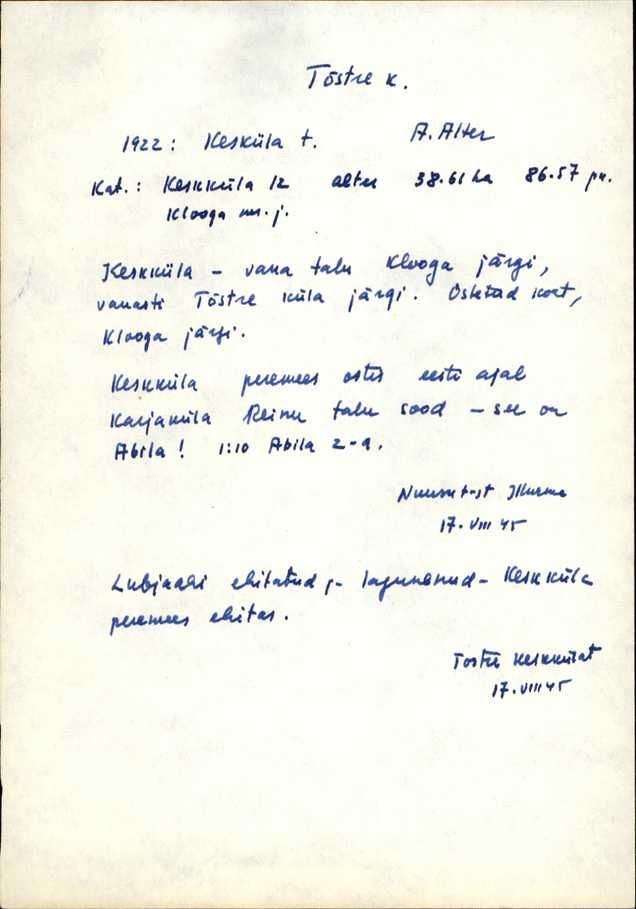 Tõstre k.
1922: Kesküla t. A. Alter
Kat.: Keskküla 12 alter 38.61 ha 86.57 pn.
Klooga m. j.
Keskküla – vana talu Klooga järgi,
vanasti Tõstre küla järgi. Ostetud kort,
Klooga järgi.
Keskküla peremees ostis eesti ajal
Karjaküla Reinu talu sood – see on
Abila! 1:10 Abila 2-a.
17. VIII 45
Lubjaahi ehitatud ja lagunenud – Keskküla
peremees ehitas.
Keskkülat
17. VIII 45